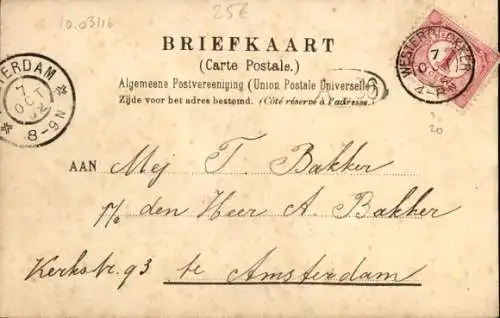 10.03/16
25€
BRIEFKAART
(Carte Postale.)
Algemeene Postvereeniging (Union Postale Universelle)
Zijde voor het adres bestemd. (Côté réservé à l'adresse.)
TERDAM
7
OCT
02
8-9N
WESTER
7
4-
20
AAN Mej T. Bakker
p/a den Heer A. Bakker
Kerkstr. 93 te Amsterdam